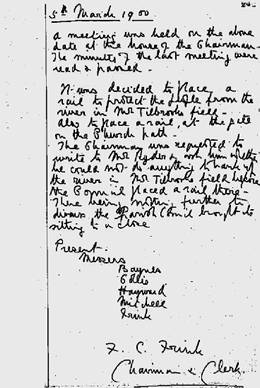 5th March 1900
a meeting was held on the above
date at the house of the Chairman.
The minutes of the last meeting were
read & passed.
It was decided to place a
rail to protect the people from the
river in Mr Tilbrooks field.
also to place a rail at the pits
on the Church path.
The Chairman was requested to
write to Mr & ask him whether
he could not do anything to hand up
the river in Mr Tilbrooks field before
the Council placed a rail there.
There being nothing further to
discuss the Parish Council brought its
sitting to a close
Present.
Messers
Baynes
Ellis
Hayward
Mitchell
Frink
F. C. Frink
Chairman & Clerk.